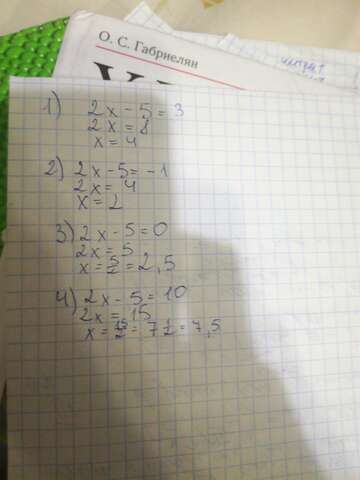 О. С. Габриелян
1) 2x - 5 = 3
2x = 8
x = 4
2) 2x - 5 = -1
2x = 4
x = 2
3) 2x - 5 = 0
2x = 5
x = 5/2 = 2,5
4) 2x - 5 = 10
2x = 15
x = 15/2 = 7 1/2 = 7,5